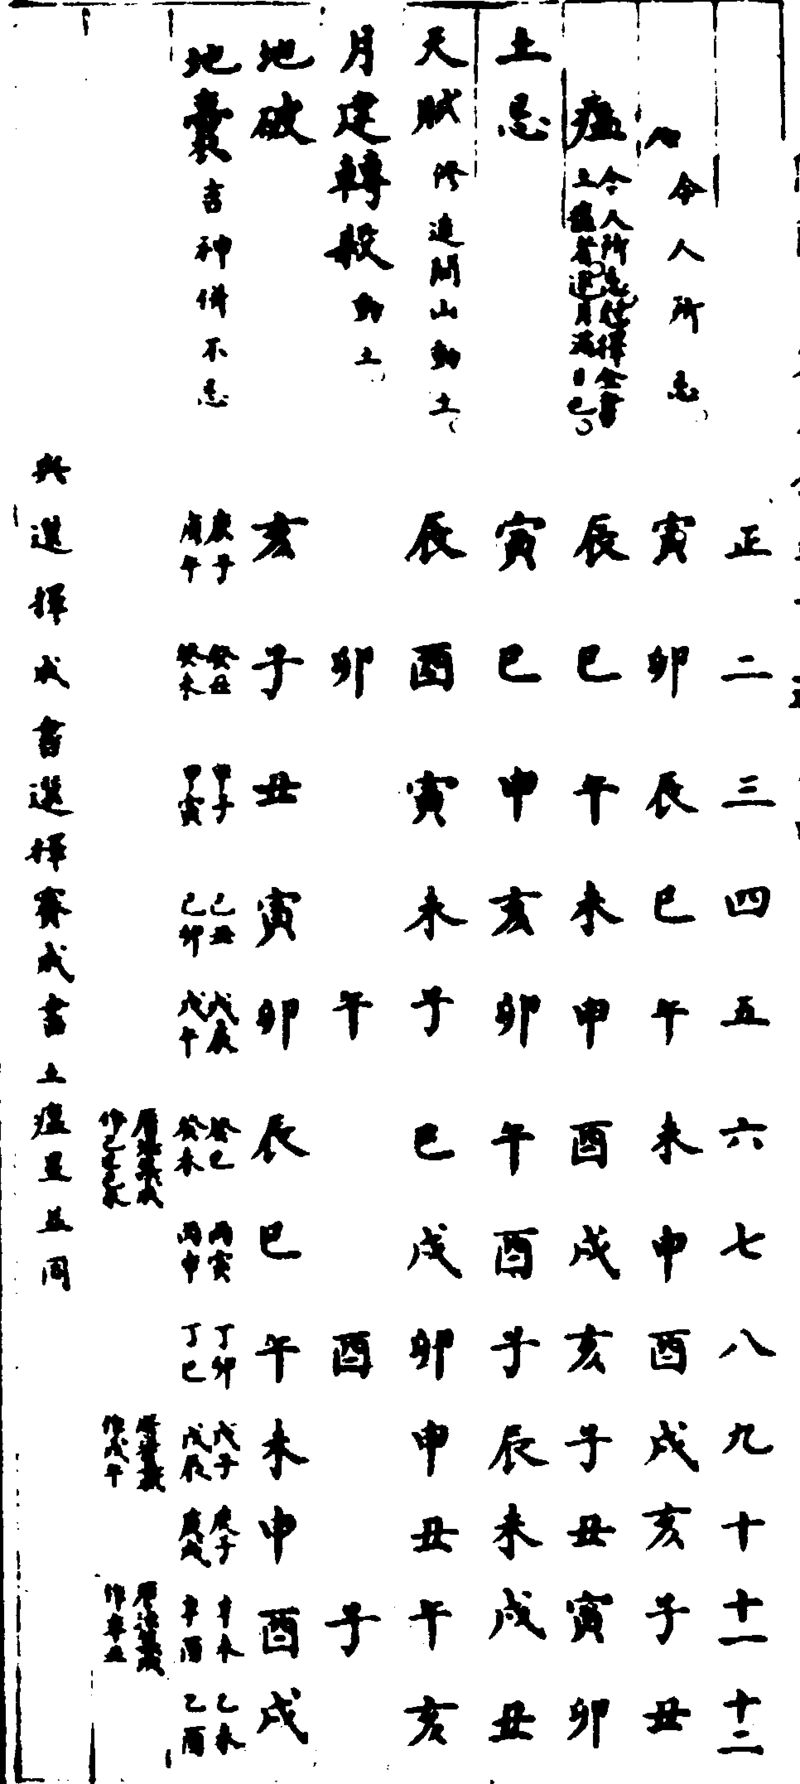 正 二 三 四 五 六 七 八 九 十 十一 十二
令人所忌 寅 卯 辰 巳 午 未 申 酉 戌 亥 子 丑
瘟 令人所忌 土瘟 辰 巳 午 未 申 酉 戌 亥 子 丑 寅 卯
土忌 寅 巳 申 亥 卯 午 酉 子 辰 未 戌 丑
天賊 修造開山動土 辰 酉 寅 未 子 巳 戌 卯 申 丑 午 亥
月建轉殺 動土 卯 午 酉 子
地破 亥 子 丑 寅 卯 辰 巳 午 未 申 酉 戌
地囊 吉神併不忌 庚子 庚午 癸丑 癸未 甲子 甲寅 己丑 己卯 戊辰 戊午 癸巳 癸未 丙寅 丙申 丁卯 丁巳 戊子 戊辰 庚子 庚戌 辛未 辛酉 乙未 乙酉
作戊午
作辛丑
與選擇成書選擇賽成書土瘟星並同